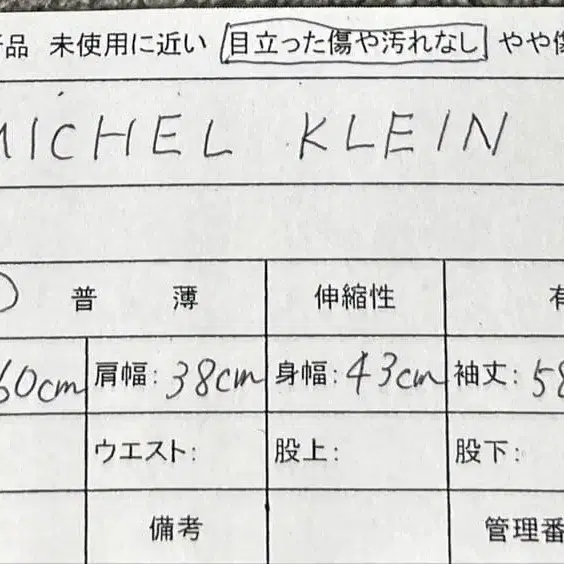 品 未使用に近い 目立った傷や汚れなし やや
MICHEL KLEIN
普 薄 伸縮性 有
60cm 肩幅: 38cm 身幅: 43cm 袖丈: 58
ウエスト: 股上: 股下:
備考 管理番